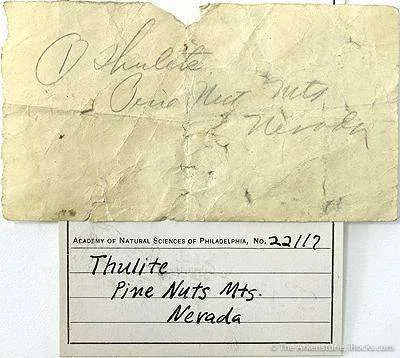 ① Thulite
Pine Nut Mts
Nevada
ACADEMY OF NATURAL SCIENCES OF PHILADELPHIA, NO. 22117
Thulite
Pine Nuts Mts.
Nevada
© The Arkenstone, iRocks.com